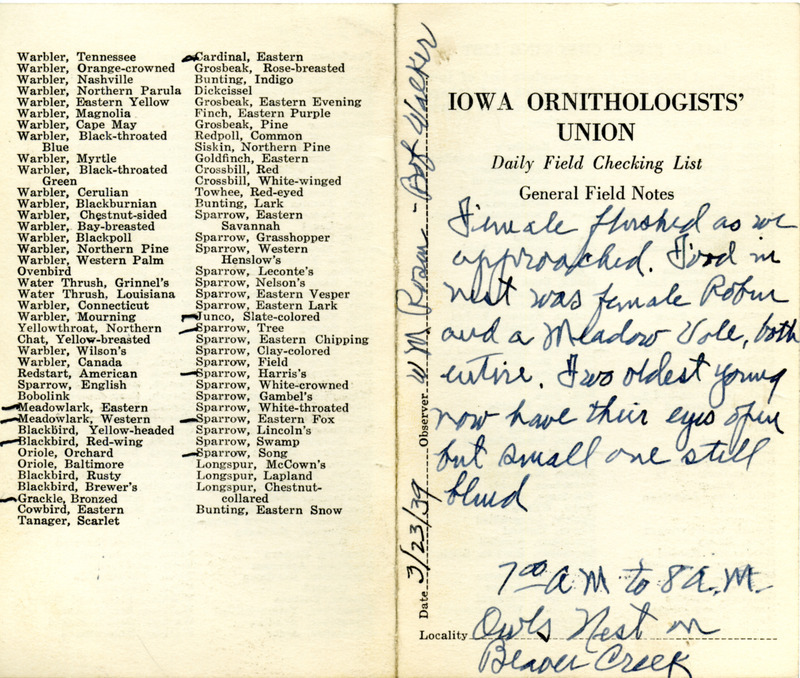 Warbler, Tennessee
Warbler, Orange-crowned
Warbler, Nashville
Warbler, Northern Parula
Warbler, Eastern Yellow
Warbler, Magnolia
Warbler, Cape May
Warbler, Black-throated
Blue
Warbler, Myrtle
Warbler, Black-throated
Green
Warbler, Cerulian
Warbler, Blackburnian
Warbler, Chestnut-sided
Warbler, Bay-breasted
Warbler, Blackpoll
Warbler, Northern Pine
Warbler, Western Palm
Ovenbird
Water Thrush, Grinnel's
Water Thrush, Louisiana
Warbler, Connecticut
Warbler, Mourning
Yellowthroat, Northern
Chat, Yellow-breasted
Warbler, Wilson's
Warbler, Canada
Redstart, American
Sparrow, English
Bobolink
Meadowlark, Eastern
Meadowlark, Western
Blackbird, Yellow-headed
Blackbird, Red-wing
Oriole, Orchard
Oriole, Baltimore
Blackbird, Rusty
Blackbird, Brewer's
Grackle, Bronzed
Cowbird, Eastern
Tanager, Scarlet
Cardinal, Eastern
Grosbeak, Rose-breasted
Bunting, Indigo
Dickcissel
Grosbeak, Eastern Evening
Finch, Eastern Purple
Grosbeak, Pine
Redpoll, Common
Siskin, Northern Pine
Goldfinch, Eastern
Crossbill, Red
Crossbill, White-winged
Towhee, Red-eyed
Bunting, Lark
Sparrow, Eastern
Savannah
Sparrow, Grasshopper
Sparrow, Western
Henslow's
Sparrow, Leconte's
Sparrow, Nelson's
Sparrow, Eastern Vesper
Sparrow, Eastern Lark
Junco, Slate-colored
Sparrow, Tree
Sparrow, Eastern Chipping
Sparrow, Clay-colored
Sparrow, Field
Sparrow, Harris's
Sparrow, White-crowned
Sparrow, Gambel's
Sparrow, White-throated
Sparrow, Eastern Fox
Sparrow, Lincoln's
Sparrow, Swamp
Sparrow, Song
Longspur, McCown's
Longspur, Lapland
Longspur, Chestnut-
collared
Bunting, Eastern Snow
Date 3/23/39 Observer W M. Rosen - Bob Walker
IOWA ORNITHOLOGISTS'
UNION
Daily Field Checking List
General Field Notes
Female flushed as we
approached. Food in
nest was female Robin
and a Meadow Vole, both
entire. Two oldest young
now have their eyes open
but small one still
blind
7 00 A M to 8 A.M.
Locality Owls Nest on
Beaver Creek